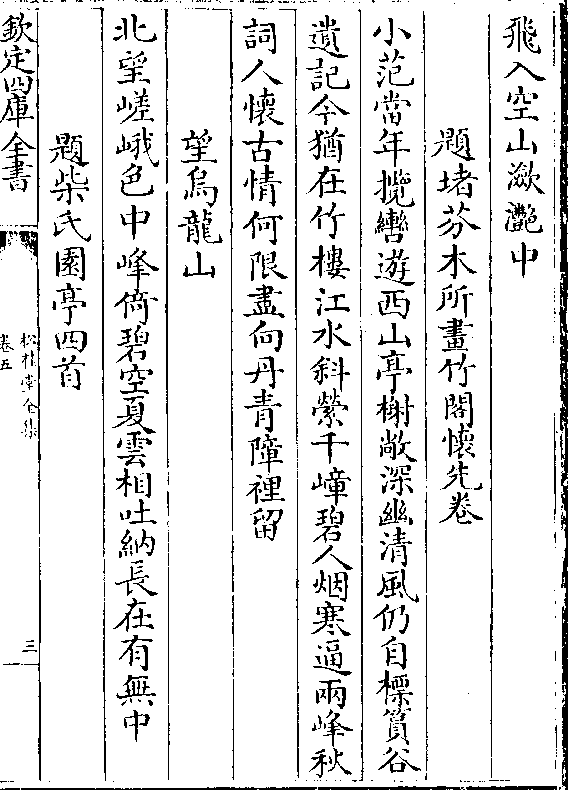 飛入空山瀲灩中
題堵芬木所畫竹閣懷先卷
小范當年攬轡遊西山亭榭敞深幽清風仍自標篔谷
遺記今猶在竹樓江水斜縈千嶂碧人烟寒逼兩峰秋
詞人懷古情何限盡向丹青障裡留
望烏龍山
北望嵯峨色中峰倚碧空夏雲相吐納長在有無中
題柴氏園亭四首
欽定四庫全書
松桂堂全集
卷五
三